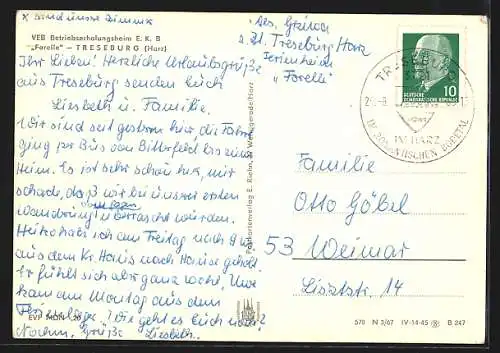 x sind unsere Zimmer
VEB Betriebserholungsheim E. K. B
„Forelle" — TRESEBURG (Harz)
Ihr Lieben! Herzliche Urlaubsgrüße
aus Treseburg senden Euch
Liesbeth u. Familie.
Wir sind gestern hier, die Fahrt
ging per Bus von Bitterfeld bis zum
Heim. Es ist sehr schön hier, nur
schade, daß wir bei unserer ersten
Wanderung vom Regen überrascht wurden.
Heiko habe ich am Freitag nach 9 W.
aus dem Kr. Haus nach Hause geholt.
Er fühlt sich aber ganz wohl. Uwe
kam am Montag aus dem
Ferienlager. Wie geht es Euch noch?
Nochm. Grüße Liesbeth.
EVP MDN 0,20
Postkartenverlag E. Riehn, Wernigerode/Harz
Abs.
z. Zt. Treseburg Harz
Ferienheim
"Forelle"
DEUTSCHE
DEMOKRATISCHE REPUBLIK
10
TRESEBURG
IM HARZ
IM ROMANTISCHEN BODETAL
Familie
Otto Göbel
53 Weimar
Lisztstr. 14
570 N 3/67 IV-14-45 B 247